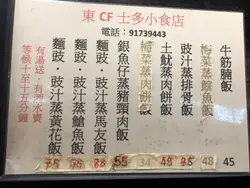 東 CF 士多小食店
電話：91739443
牛筋腩飯 45
梅菜蒸鯇魚飯 48
豉汁蒸排骨飯
土魷蒸肉餅飯
梅菜蒸肉餅飯
銀魚仔蒸豬頸肉飯 55
麵豉·豉汁蒸馬友飯
麵豉·豉汁蒸飯
麵豉·豉汁蒸黃花飯
有湯送，有汽水賣
等候十至十五分鐘